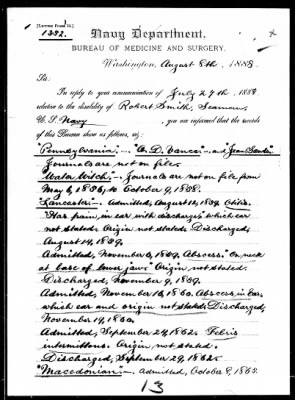 [LETTER FORM 31.]
1332.
Navy Department,
BUREAU OF MEDICINE AND SURGERY.
Washington, August 8th, 1888
Sir:
In reply to your communication of July 27th 1888
relative to the disability of Robert Smith, Seaman,
U.S. Navy, you are informed that the records
of this Bureau show as follows, viz:
"Pennsylvania," "A. D. Vance" and
Journals are not on file.
"Water Witch," Journals are not on file from
May 6, to October 9,
"Lancaster" Admitted, August 12, 1859. Otitis.
"Has pain in ear with discharge," which ear
not stated. Origin not stated. Discharged,
August 14, 1859.
Admitted, November 6, 1859. Abscess. On neck
at base of lower jaw. Origin not stated.
Discharged, November 9, 1859.
Admitted, November 16, 1860. Abscess in ear,
which ear and origin not stated. Discharged,
November 19, 1860.
Admitted, September 24, 1862. Febris
intermittens. Origin not stated.
Discharged, September 29, 1862.
"Macedonian" Admitted, October 8,
13